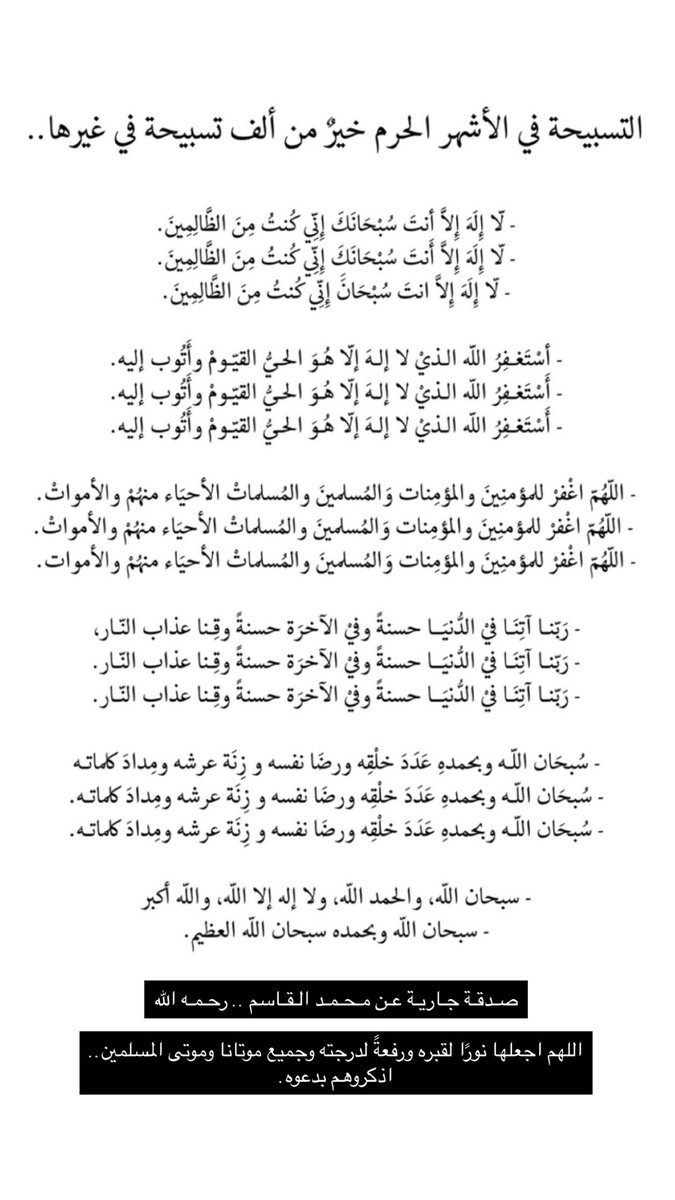 التسبيحة في الأشهر الحرم خيرٌ من ألف تسبيحة في غيرها..
- لّا إِلَهَ إِلاَّ أنتَ سُبْحَانَكَ إِنِّي كُنتُ مِنَ الظَّالِمِينَ.
- لّا إِلَهَ إِلاَّ أَنتَ سُبْحَانَكَ إِنِّي كُنتُ مِنَ الظَّالِمِينَ.
- لّا إِلَهَ إِلاَّ انتَ سُبْحَانََ إِنِّي كُنتُ مِنَ الظَّالِمِينَ.
- أسْتَغـفِرُ اللّه الـذيْ لا إلـهَ إلّا هُـوَ الحـيُّ القيّـومْ وأَتُوب إليه.
- أَسْتَغـفِرُ اللّه الـذيْ لا إلـهَ إلّا هُـوَ الحـيُّ القيّـومْ وأَتُوب إليه.
- أَسْتَغـفِرُ اللّه الـذيْ لا إلـهَ إلّا هُـوَ الحـيُّ القيّـومْ وأَتُوب إليه.
- اللّهُمّ اغْفرْ للمؤمنِينَ والمؤمِنات وَالمُسلمينَ والمُسلماتْ الأحيَاء منهُمْ والأمواتْ.
- اللّهُمّ اغْفرْ للمؤمنِينَ والمؤمِنات وَالمُسلمينَ والمُسلماتْ الأحيَاء منهُمْ والأمواتْ.
- اللّهُمّ اغْفرْ للمؤمنِينَ والمؤمِنات وَالمُسلمينَ والمُسلماتْ الأحيَاء منهُمْ والأموات.
- رَبّنـا آتِنَـا فيْ الدُّنيَـا حسنةً وفيْ الآخرَة حسنةً وقِـنا عذاب النّـار،
- رَبّنـا آتِنَـا فيْ الدُّنيَـا حسنةً وفيْ الآخرَة حسنةً وقِـنا عذاب النّـار.
- رَبّنـا آتِنَـا فيْ الدُّنيَـا حسنةً وفيْ الآخرَة حسنةً وقِـنا عذاب النّـار.
- سُبحَان اللّـه وبحمدهِ عَدَدَ خلْقِه ورضَا نفسه و زِنَة عرشه ومِدادَ كلماتـه
- سُبحَان اللّـه وبحمدهِ عَدَدَ خلْقِه ورضَا نفسه و زِنَة عرشه ومِدادَ كلماتـه.
- سُبحَان اللّـه وبحمدهِ عَدَدَ خلْقِه ورضَا نفسه و زِنَة عرشه ومِدادَ كلماتـه.
- سبحان اللّه، والحمد اللّه، ولا إله إلا اللّه، واللّه أكبر
- سبحان اللّه وبحمده سبحان اللّه العظيم.
صـدقـة جـاريـة عـن مـحـمـد الـقـاسـم .. رحـمـه الله
اللهم اجعلها نورًا لقبره ورفعةً لدرجته وجميع موتانا وموتى المسلمين..
اذكروهم بدعوه.